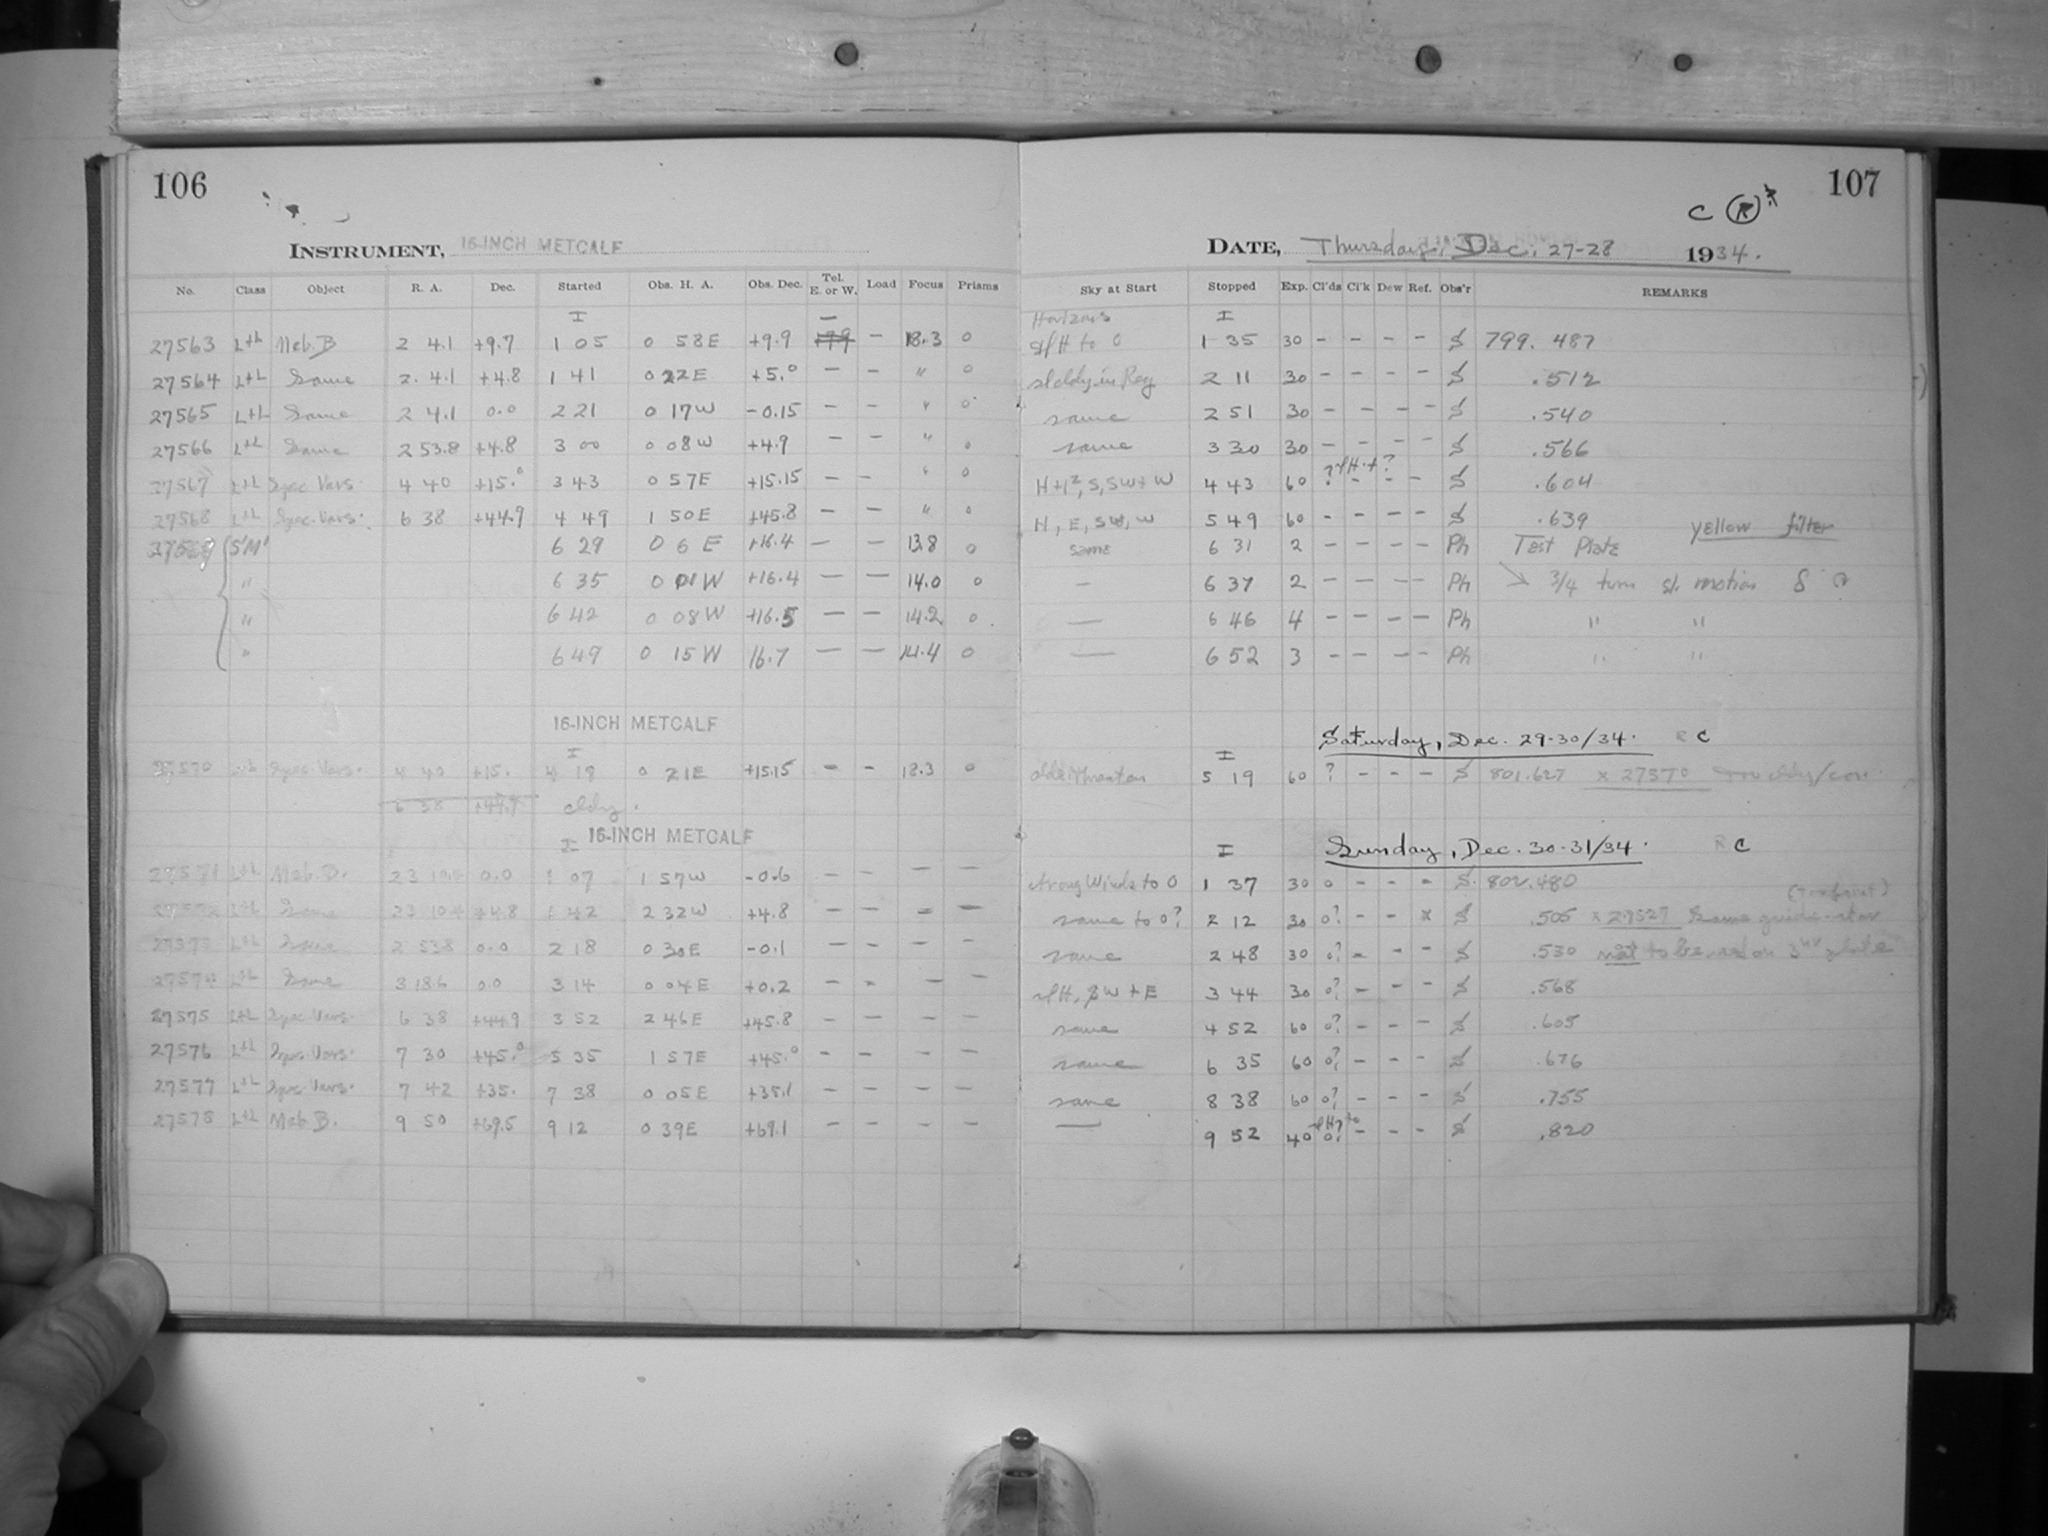 106
INSTRUMENT, 16-INCH METCALF
No. Class Object R. A. Dec. Started Obs. H. A. Obs. Dec. Tel. E. or W. Load Focus Prisms
I
27563 L+L Meb. B 2 4.1 +9.7 1 05 0 58E +9.9 — 18.3 0
27564 L+L Same 2 4.1 +4.8 1 41 0 22E +5.° — — " 0
27565 L+L Same 2 4.1 0.0 2 21 0 17W -0.15 — — " 0
27566 L+L Same 2 53.8 +4.8 3 00 0 08W +4.9 — — " 0
27567 L+L Spec. Vars. 4 40 +15.° 3 43 0 57E +15.15 — — " 0
27568 L+L Spec. Vars. 6 38 +44.9 4 49 1 50E +45.8 — — " 0
27569 S'M' 6 29 0 6 E +16.4 — — 13.8 0
" 6 35 0 01W +16.4 — — 14.0 0
" 6 42 0 08W +16.5 — — 14.2 0
" 6 49 0 15W 16.7 — — 14.4 0
16-INCH METCALF
I
27570 L+L Spec. Vars. 4 40 +15. 4 18 0 21E +15.15 — — 18.3 0
6 38 +44.9 cldy.
16-INCH METCALF
I
27571 L+L Meb. D. 23 0.0 1 07 1 57W -0.6 — — — —
27572 L+L Same 23 10.4 +4.8 1 42 2 32W +4.8 — — — —
27573 L+L Same 2 53.8 0.0 2 18 0 30E -0.1 — — — —
27574 L+L Same 3 18.6 0.0 3 14 0 04E +0.2 — — — —
27575 L+L Spec. Vars. 6 38 +44.9 3 52 2 46E +45.8 — — — —
27576 L+L Spec. Vars. 7 30 +45.° 5 35 1 57E +45.° — — — —
27577 L+L Spec. Vars. 7 42 +35. 7 38 0 05E +35.1 — — — —
27578 L+L Meb. B. 9 50 +69.5 9 12 0 39E +69.1 — — — —
107
C R
DATE, Thursday, Dec. 27-28 1934.
Sky at Start Stopped Exp. Cl'ds Cl'k Dew Ref. Obs'r REMARKS
Horizons I
slH to 0 1 35 30 - - - - S 799.487
sl cldy in Reg 2 11 30 - - - - S .512
same 2 51 30 - - - - S .540
same 3 30 30 - - - - S .566
H+12, S, SW+W 4 43 60 ? - - - S .604
H, E, SW, W 5 49 60 - - - - S .639 yellow filter
same 6 31 2 - - - - Ph Test Plate
— 6 37 2 - - - - Ph 3/4 turn sl. motion S
— 6 46 4 - - - - Ph " "
— 6 52 3 - - - - Ph " "
Saturday, Dec. 29-30/34. R C
I
5 19 60 ? - - - S 801.627 x 27570
Sunday, Dec. 30-31/34. R C
I
strong Winds to 0 1 37 30 0 - - - S. 802.480
same to 0? 2 12 30 0? - - x S .505 x 27527 Same guide star
same 2 48 30 0? - - - S .530 not to be used on 3rd plate
slH, SW + E 3 44 30 0? - - - S .568
same 4 52 60 0? - - - S .605
same 6 35 60 0? - - - S .676
same 8 38 60 0? - - - S .755
— 9 52 40 0? - - - S .820